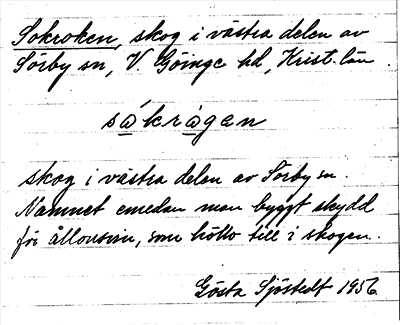 Sokroken, skog i västra delen av
Sörby sn, V Göinge hd, Krist. län.
såkrågan
skog i västra delen av Sörby sn.
Namnet emedan man byggt skydd
för ållonsvin, som hölls till i skogen.
Gösta Sjöstedt 1956